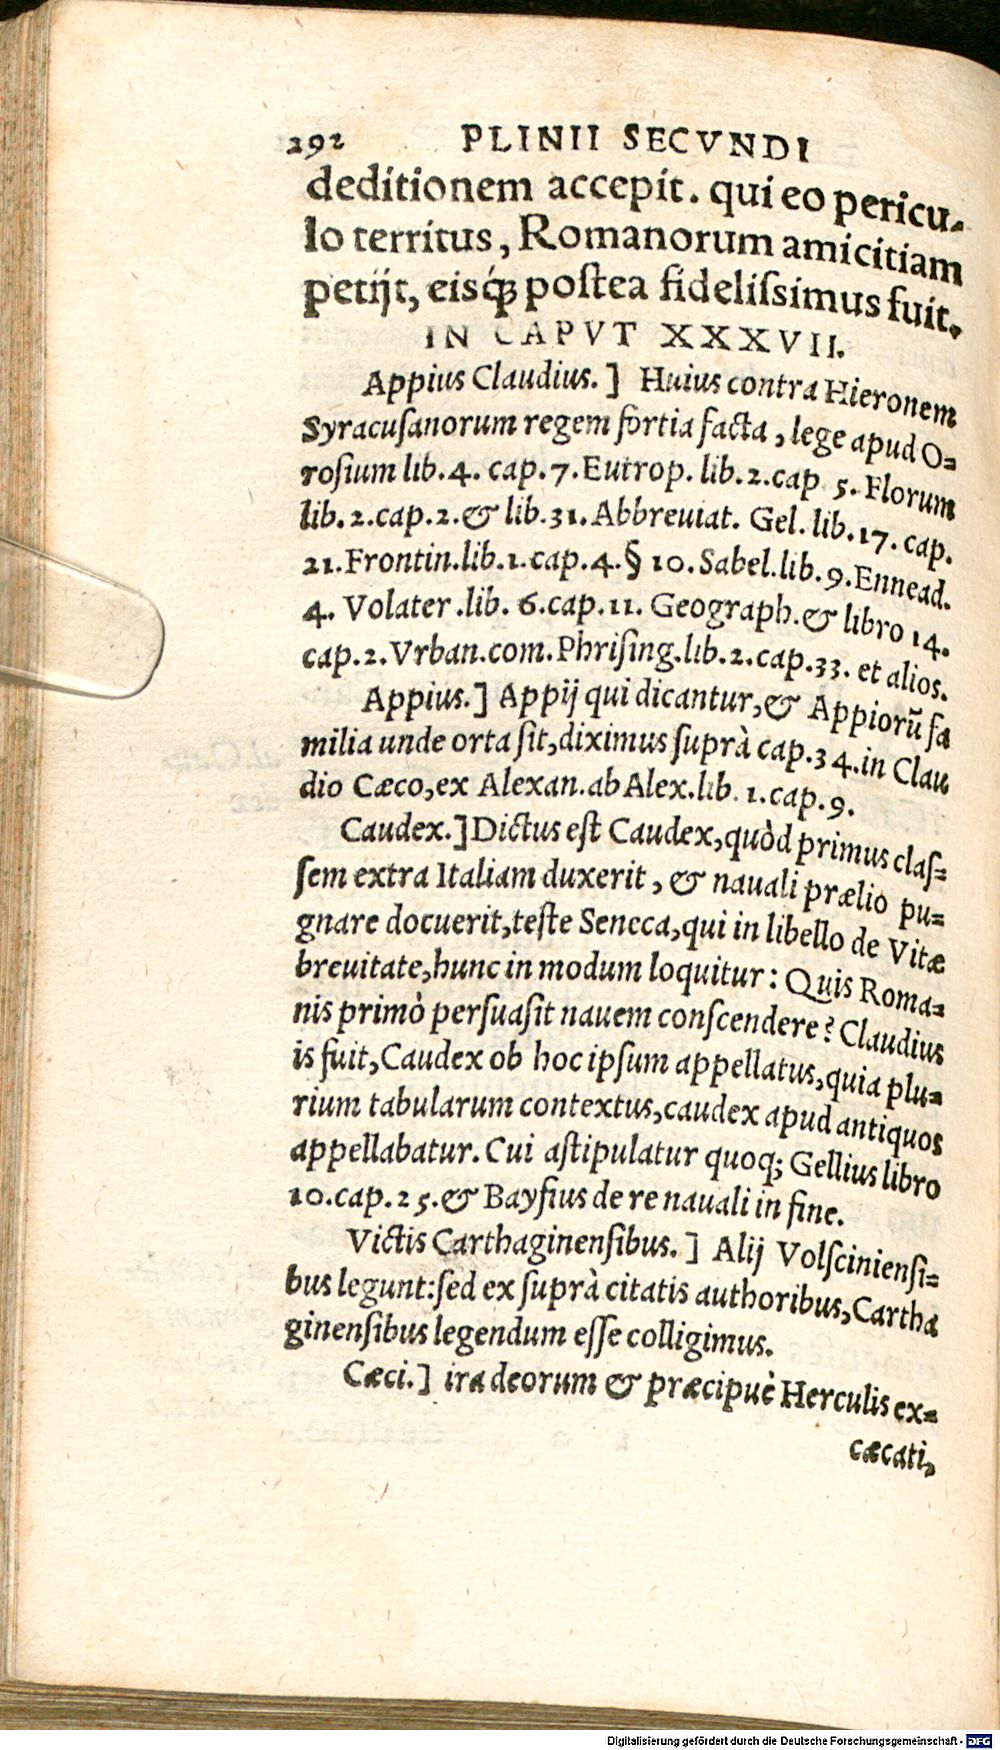 292 PLINII SECVNDI
deditionem accepit. qui eo pericu-
lo territus, Romanorum amicitiam
petijt, eisq́ꝫ postea fidelissimus fuit.
IN CAPVT XXXVII.
Appius Claudius.] Huius contra Hieronem
Syracusanorum regem fortia facta, lege apud O=
rosium lib.4. cap.7. Eutrop. lib.2.cap 5. Florum
lib.2.cap.2.& lib.31. Abbreuiat. Gel. lib.17. cap.
21. Frontin.lib.1.cap.4.§ 10. Sabel.lib.9. Ennead.
4. Volater.lib. 6.cap.11. Geograph.& libro 14.
cap.2. Vrban.com. Phrising.lib.2.cap.33. et alios.
Appius.] Appij qui dicantur,& Appiorū fa
milia unde orta sit, diximus suprà cap.34.in Clau
dio Cæco, ex Alexan.ab Alex.lib. 1.cap.9.
Caudex.] Dictus est Caudex, quòd primus clas=
sem extra Italiam duxerit, & nauali prælio pu=
gnare docuerit, teste Seneca, qui in libello de Vitæ
breuitate, hunc in modum loquitur: Quis Roma=
nis primò persuasit nauem conscendere? Claudius
is fuit, Caudex ob hoc ipsum appellatus, quia plu=
rium tabularum contextus, caudex apud antiquos
appellabatur. Cui astipulatur quoq; Gellius libro
10.cap.25.& Bayfius de re nauali in fine.
Victis Carthaginensibus.] Alij Volsciniensi=
bus legunt: sed ex suprà citatis authoribus, Cartha
ginensibus legendum esse colligimus.
Cæci.] ira deorum & præcipuè Herculis ex=
cæcati,
Digitalisierung gefördert durch die Deutsche Forschungsgemeinschaft - DFG